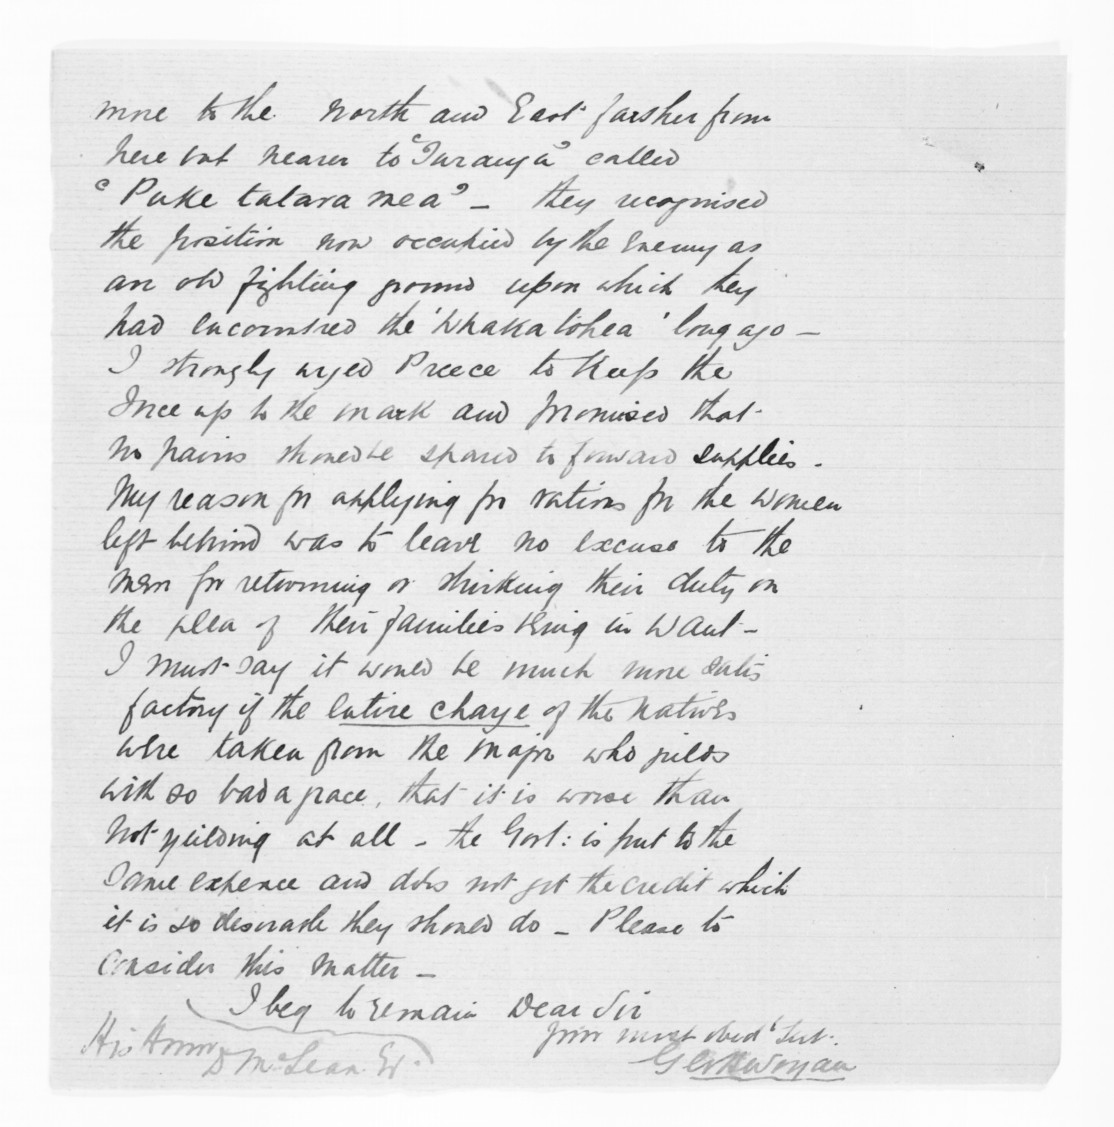 more to the North and East farther from
here but nearer to "Turanga" called
"Puke talara mea" - they recognised
the position now occupied by the Enemy as
an old fighting ground upon which they
had encountred the 'Whakatohea' long ago -
I strongly urged Preece to Keep the
Force up to the mark and promised that
no pains should be spared to forward supplies.
My reason for applying for rations for the women
left behind was to leave no excuse to the
men for retourning or shirking their duty on
the plea of their families being in want -
I must say it would be much more satis
factory if the entire charge of the Natives
were taken from the Major who yields
with so bad a grace, that it is worse than
Not yielding at all - the Govt: is put to the
Same expence and does not get the credit which
it is so desirable they should do - Please to
Consider this Matter -
I beg to remain Dear Sir
His Honor your most obed' Sert.
D McLean Er.